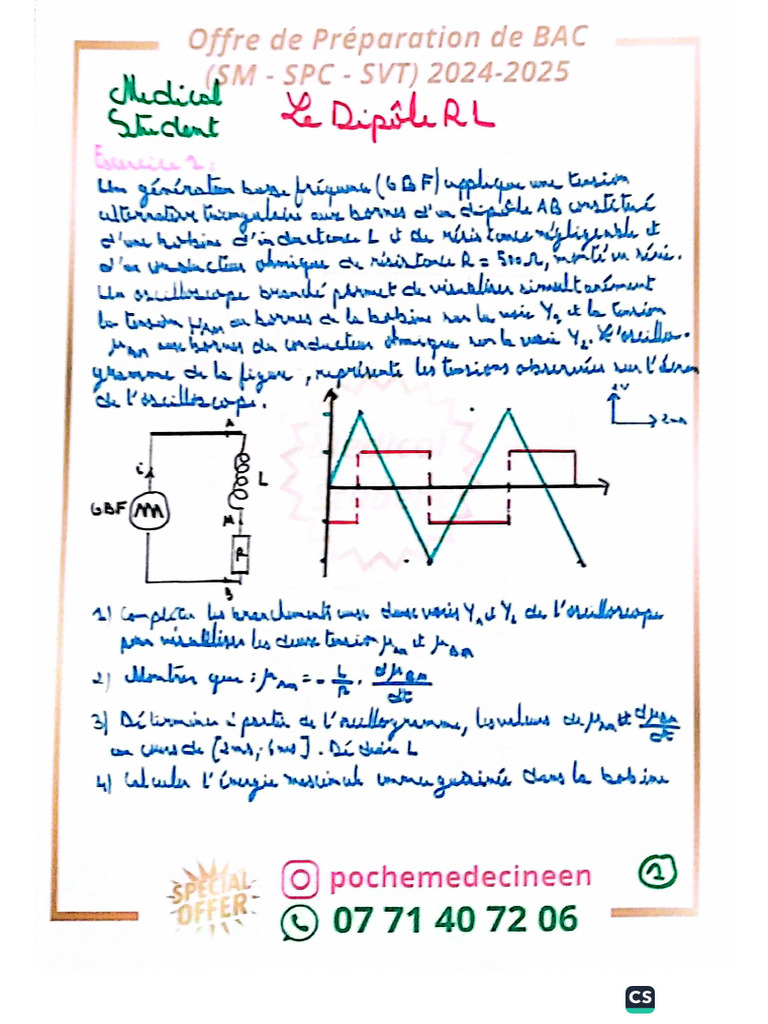 Offre de Préparation de BAC
(SM - SPC - SVT) 2024-2025
Medical
Student
Le Dipôle RL
Exercice 1 :
Un générateur basse fréquence (GBF) applique une tension
alternative triangulaire aux bornes d'un dipôle AB constitué
d'une bobine d'inductance L et de résistance négligeable et
d'un conducteur ohmique de résistance R = 500 Ω, monté en série.
Un oscilloscope branché permet de visualiser simultanément
la tension μAM aux bornes de la bobine sur la voie Y1 et la tension
μBM aux bornes du conducteur ohmique sur la voie Y2. L'oscillo-
gramme de la figure, représente les tensions observées sur l'écran
de l'oscilloscope.
2V
2ms
A
i
L
GBF
M
R
B
1) Compléter les branchements aux deux voies Y1 et Y2 de l'oscilloscope
pour visualiser les deux tension μAM et μBM
2) Montrer que : μAM = - L/R . dμBM/dt
3) Déterminer à partir de l'oscillogramme, les valeurs de μAM et dμBM/dt
au cours de [2ms; 6ms]. Déduire L
4) Calculer l'énergie maximale emmagasinée dans la bobine
SPECIAL
OFFER
pochemedecineen
07 71 40 72 06
1
CS